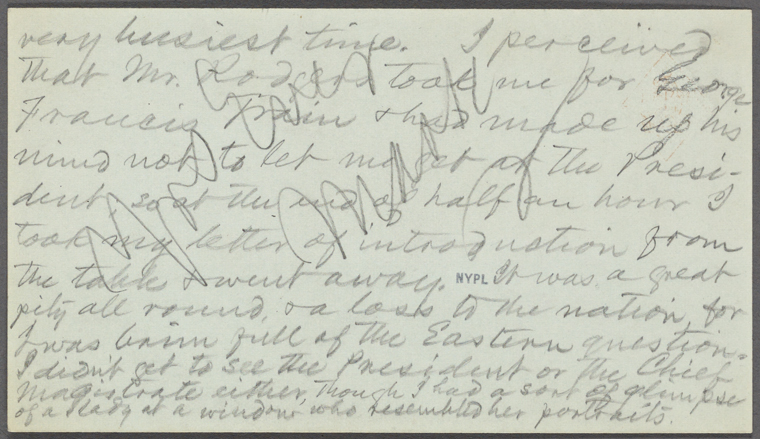 very busiest time. I perceived
that Mr. Rodgers took me for George
Francis Train & had made up his
mind not to let me get at the Presi-
dent, so at the end of half an hour I
took my letter of introduction from
the table & went away. NYPL It was a great
pity all round, & a loss to the nation, for
I was brim full of the Eastern question.
I didn't get to see the President or the Chief
Magistrate either, though I had a sort of glimpse
of a lady at a window who resembled her portraits.